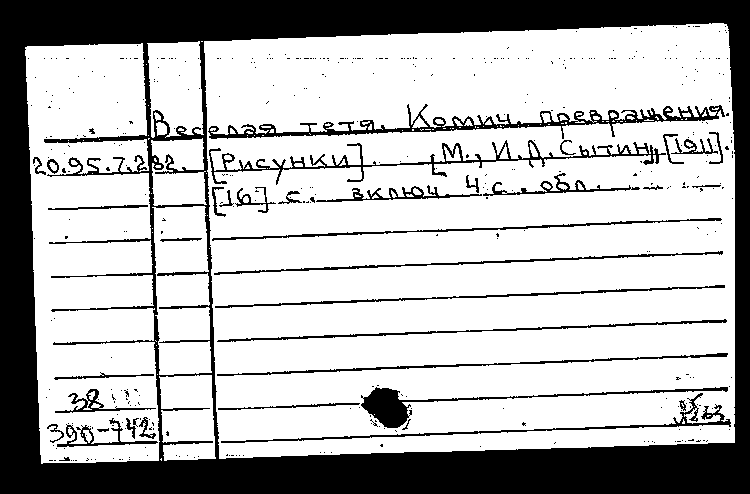 Веселая тетя. Комич. превращения.
20.95.7.232. [Рисунки]. [М., И.Д. Сытин, [1911].
[16] с. включ. 4 с. обл.
38
390-742.